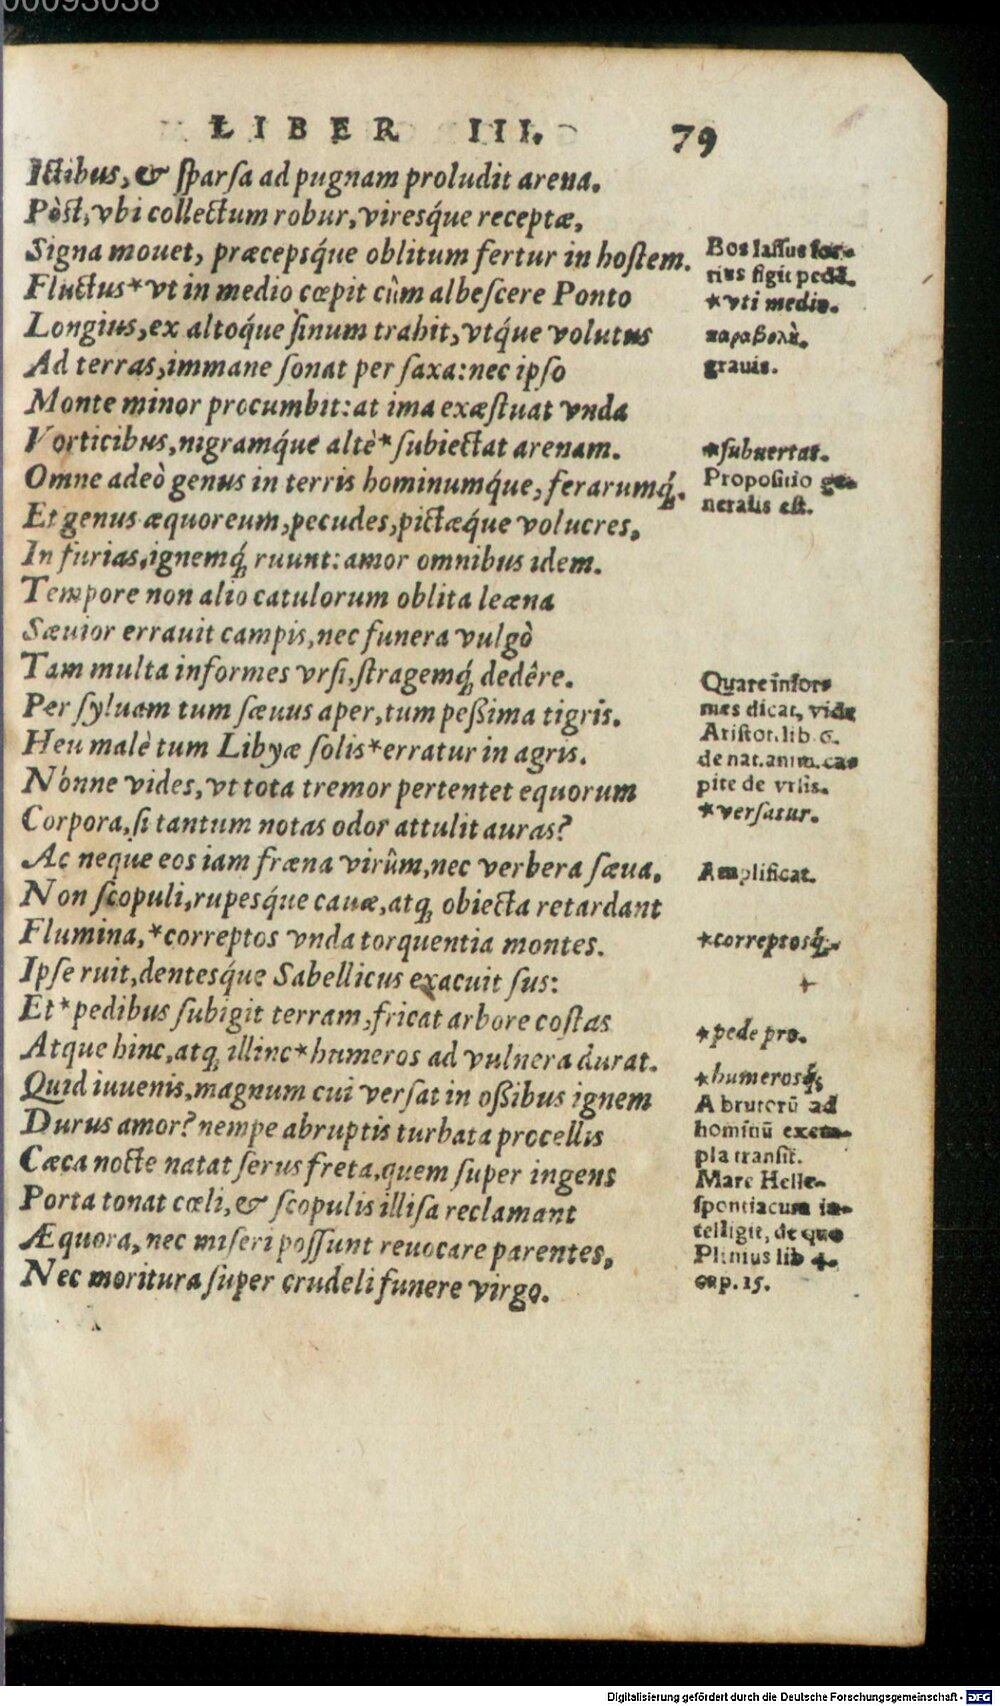 00093038
LIBER III. 79
Ictibus, & sparsa ad pugnam proludit arena.
Pòst, vbi collectum robur, viresq́ue receptæ,
Signa mouet, præcepsq́ue oblitum fertur in hostem.
Fluctus* vt in medio cœpit cùm albescere Ponto
Longius, ex altoq́ue sinum trahit, vtq́ue volutus
Ad terras, immane sonat per saxa: nec ipso
Monte minor procumbit: at ima exæstuat vnda
Vorticibus, nigramq́ue altè* subiectat arenam.
Omne adeò genus in terris hominumq́ue, ferarumq́;
Et genus æquoreum, pecudes, pictæq́ue volucres,
In furias, ignemq́; ruunt: amor omnibus idem.
Tempore non alio catulorum oblita leæna
Sæuior errauit campis, nec funera vulgò
Tam multa informes vrsi, stragemq́; dedêre.
Per syluam tum sæuus aper, tum peßima tigris.
Heu malè tum Libyæ solis* erratur in agris.
Nónne vides, vt tota tremor pertentet equorum
Corpora, si tantum notas odor attulit auras?
Ac neque eos iam fræna virûm, nec verbera sæua,
Non scopuli, rupesq́ue cauæ, atq; obiecta retardant
Flumina, *correptos vnda torquentia montes.
Ipse ruit, dentesq́ue Sabellicus exacuit sus:
Et* pedibus subigit terram, fricat arbore costas
Atque hinc, atq; illinc* humeros ad vulnera durat.
Quid iuuenis, magnum cui versat in oßibus ignem
Durus amor? nempe abruptis turbata procellis
Cæca nocte natat serus freta, quem super ingens
Porta tonat cœli, & scopulis illisa reclamant
Æquora, nec miseri possunt reuocare parentes,
Nec moritura super crudeli funere virgo.
Bos lassus for-
tius figit pedē.
*vti medio.
παραβολὴ.
grauis.
*subuertat.
Propositio ge-
neralis est.
Quare infor-
mes dicat, vide
Aristot. lib. 6.
de nat. anim. ca-
pite de vrsis.
*versatur.
Amplificat.
*correptosq́;
+
*pede pro.
*humerosq́;
A brutorū ad
hominū exem-
pla transit.
Mare Helle-
spontiacum in-
telligit, de quo
Plinius lib 4.
cap. 15.
Digitalisierung gefördert durch die Deutsche Forschungsgemeinschaft - DFG